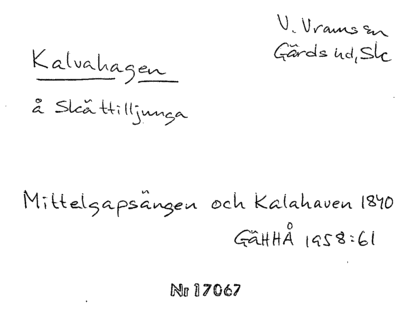 V. Vramsån
Gärds hd, Sk
Kalvahagen
å Skättilljunga
Mittelgapsängen och Kalahaven 1840
GäHHÅ 1958:61
Nr 17067